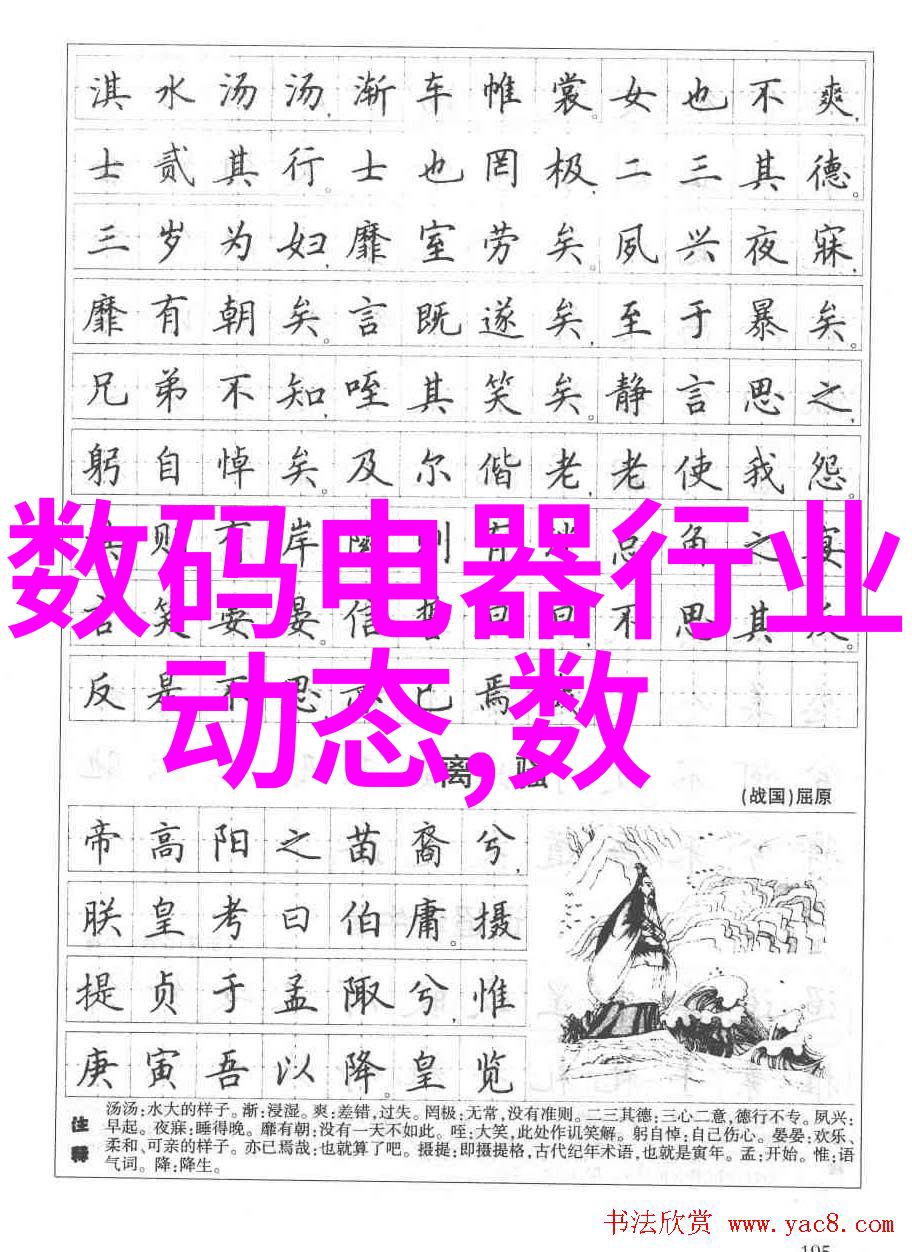 淇水汤汤,渐车帷裳。女也不爽,
士贰其行。士也罔极,二三其德。
三岁为妇,靡室劳矣。夙兴夜寐,
靡有朝矣。言既遂矣,至于暴矣。
兄弟不知,咥其笑矣。静言思之,
躬自悼矣。及尔偕老,老使我怨。
则有岸
数码电器行业
言笑晏晏。信誓旦旦,不思其反。
反是不思,已焉
动态,数
离骚
(战国)屈原
帝高阳之苗裔兮,
朕皇考曰伯庸。摄
提贞于孟陬兮,惟
庚寅吾以降。皇览
注释
汤汤:水大的样子。渐:浸湿。爽:差错,过失。罔极:无常,没有准则。二三其德:三心二意,德行不专。夙兴:
早起。夜寐:睡得晚。靡有朝:没有一天不如此。咥:大笑,此处作讥笑解。躬自悼:自己伤心。晏晏:欢乐、
柔和、可亲的样子。亦已焉哉:也就算了吧。摄提:即摄提格,古代纪年术语,也就是寅年。孟:开始。惟:语
气词。降:降生。
书法欣赏 www.yac8.com
105